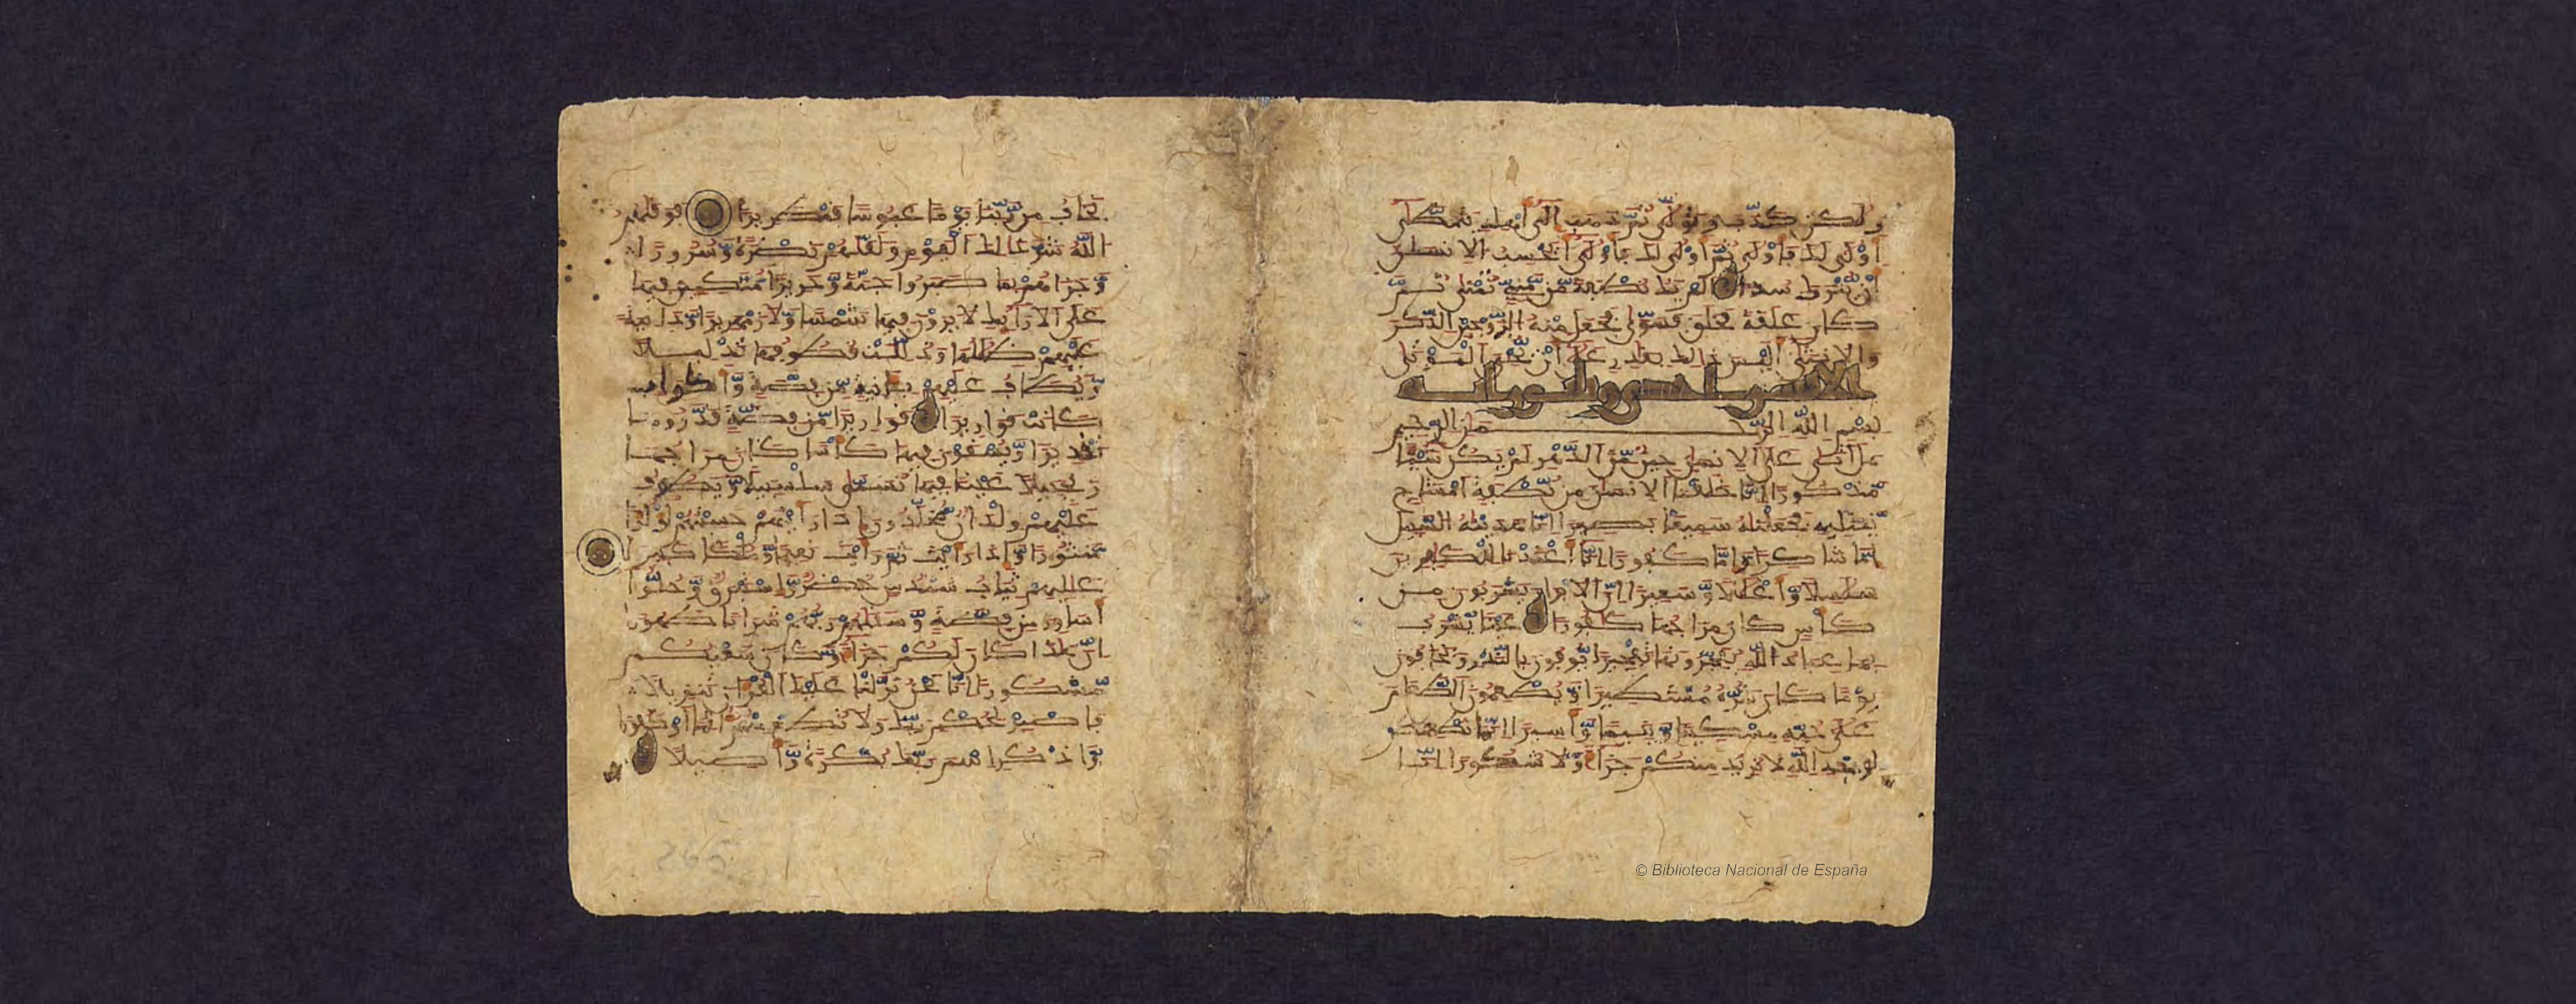 ولكن كذّب وتولّى ثمّ ذهب الى اهله يتمطّى
اولى لك فاولى ثمّ اولى لك فاولى ايحسب الانسن
ان يّترك سدى الم يك نطفة مّن مّنيّ تمنى ثمّ
كان علقة فخلق فسوّى فجعل منه الزّوجين الذّكر
والانثى اليس ذلك بقدر على ان يّحيي الموتى
بسم الله الرّحمن الرحيم
هل اتى على الانسن حين مّن الدّهر لم يكن شيئا
مّذكورا انّا خلقنا الانسن من نّطفة امشاج
نّبتليه فجعلنه سميعا بصيرا انّا هدينه السّبيل
امّا شاكرا وامّا كفورا انّا اعتدنا للكفرين
سلسلا وّاغللا وّسعيرا انّ الابرار يشربون من
كأس كان مزاجها كافورا عينا يّشرب
بها عباد الله يفجّرونها تفجيرا يّوفون بالنّذر ويخافون
يوما كان شرّه مستطيرا وّيطعمون الطّعام
على حبّه مسكينا وّيتيما وّاسيرا انّما نطعمكم
لوجه الله لا نريد منكم جزاء وّلا شكورا انّا
نخاف من رّبّنا يوما عبوسا قمطريرا فوقىهم
الله شرّ ذلك اليوم ولقّىهم نضرة وّسرورا
وّجزىهم بما صبروا جنّة وّحريرا مّتّكين فيها
على الارايك لا يرون فيها شمسا وّلا زمهريرا ودانية
عليهم ظللها وذللت قطوفها تذليلا
وّيطاف عليهم بانية مّن فضّة وّاكواب
كانت قواريرا قواريرا مّن فضّة قدّروها
تقديرا وّيسقون فيها كأسا كان مزاجها
زنجبيلا عينا فيها تسمّى سلسبيلا وّيطوف
عليهم ولدان مّخلّدون اذا رايتهم حسبتهم لؤلؤا
مّنثورا وّاذا رايت ثمّ رايت نعيما وّملكا كبيرا
عليهم ثياب سندس خضر وّاستبرق وّحلّوا
اساور من فضّة وّسقىهم ربّهم شرابا طهورا
انّ هذا كان لكم جزاء وّكان سعيكم
مّشكورا انّا نحن نزّلنا عليك القران تنزيلا
فاصبر لحكم ربّك ولا تطع منهم اثما او كفورا
وّاذكر اسم ربّك بكرة وّاصيلا
© Biblioteca Nacional de España